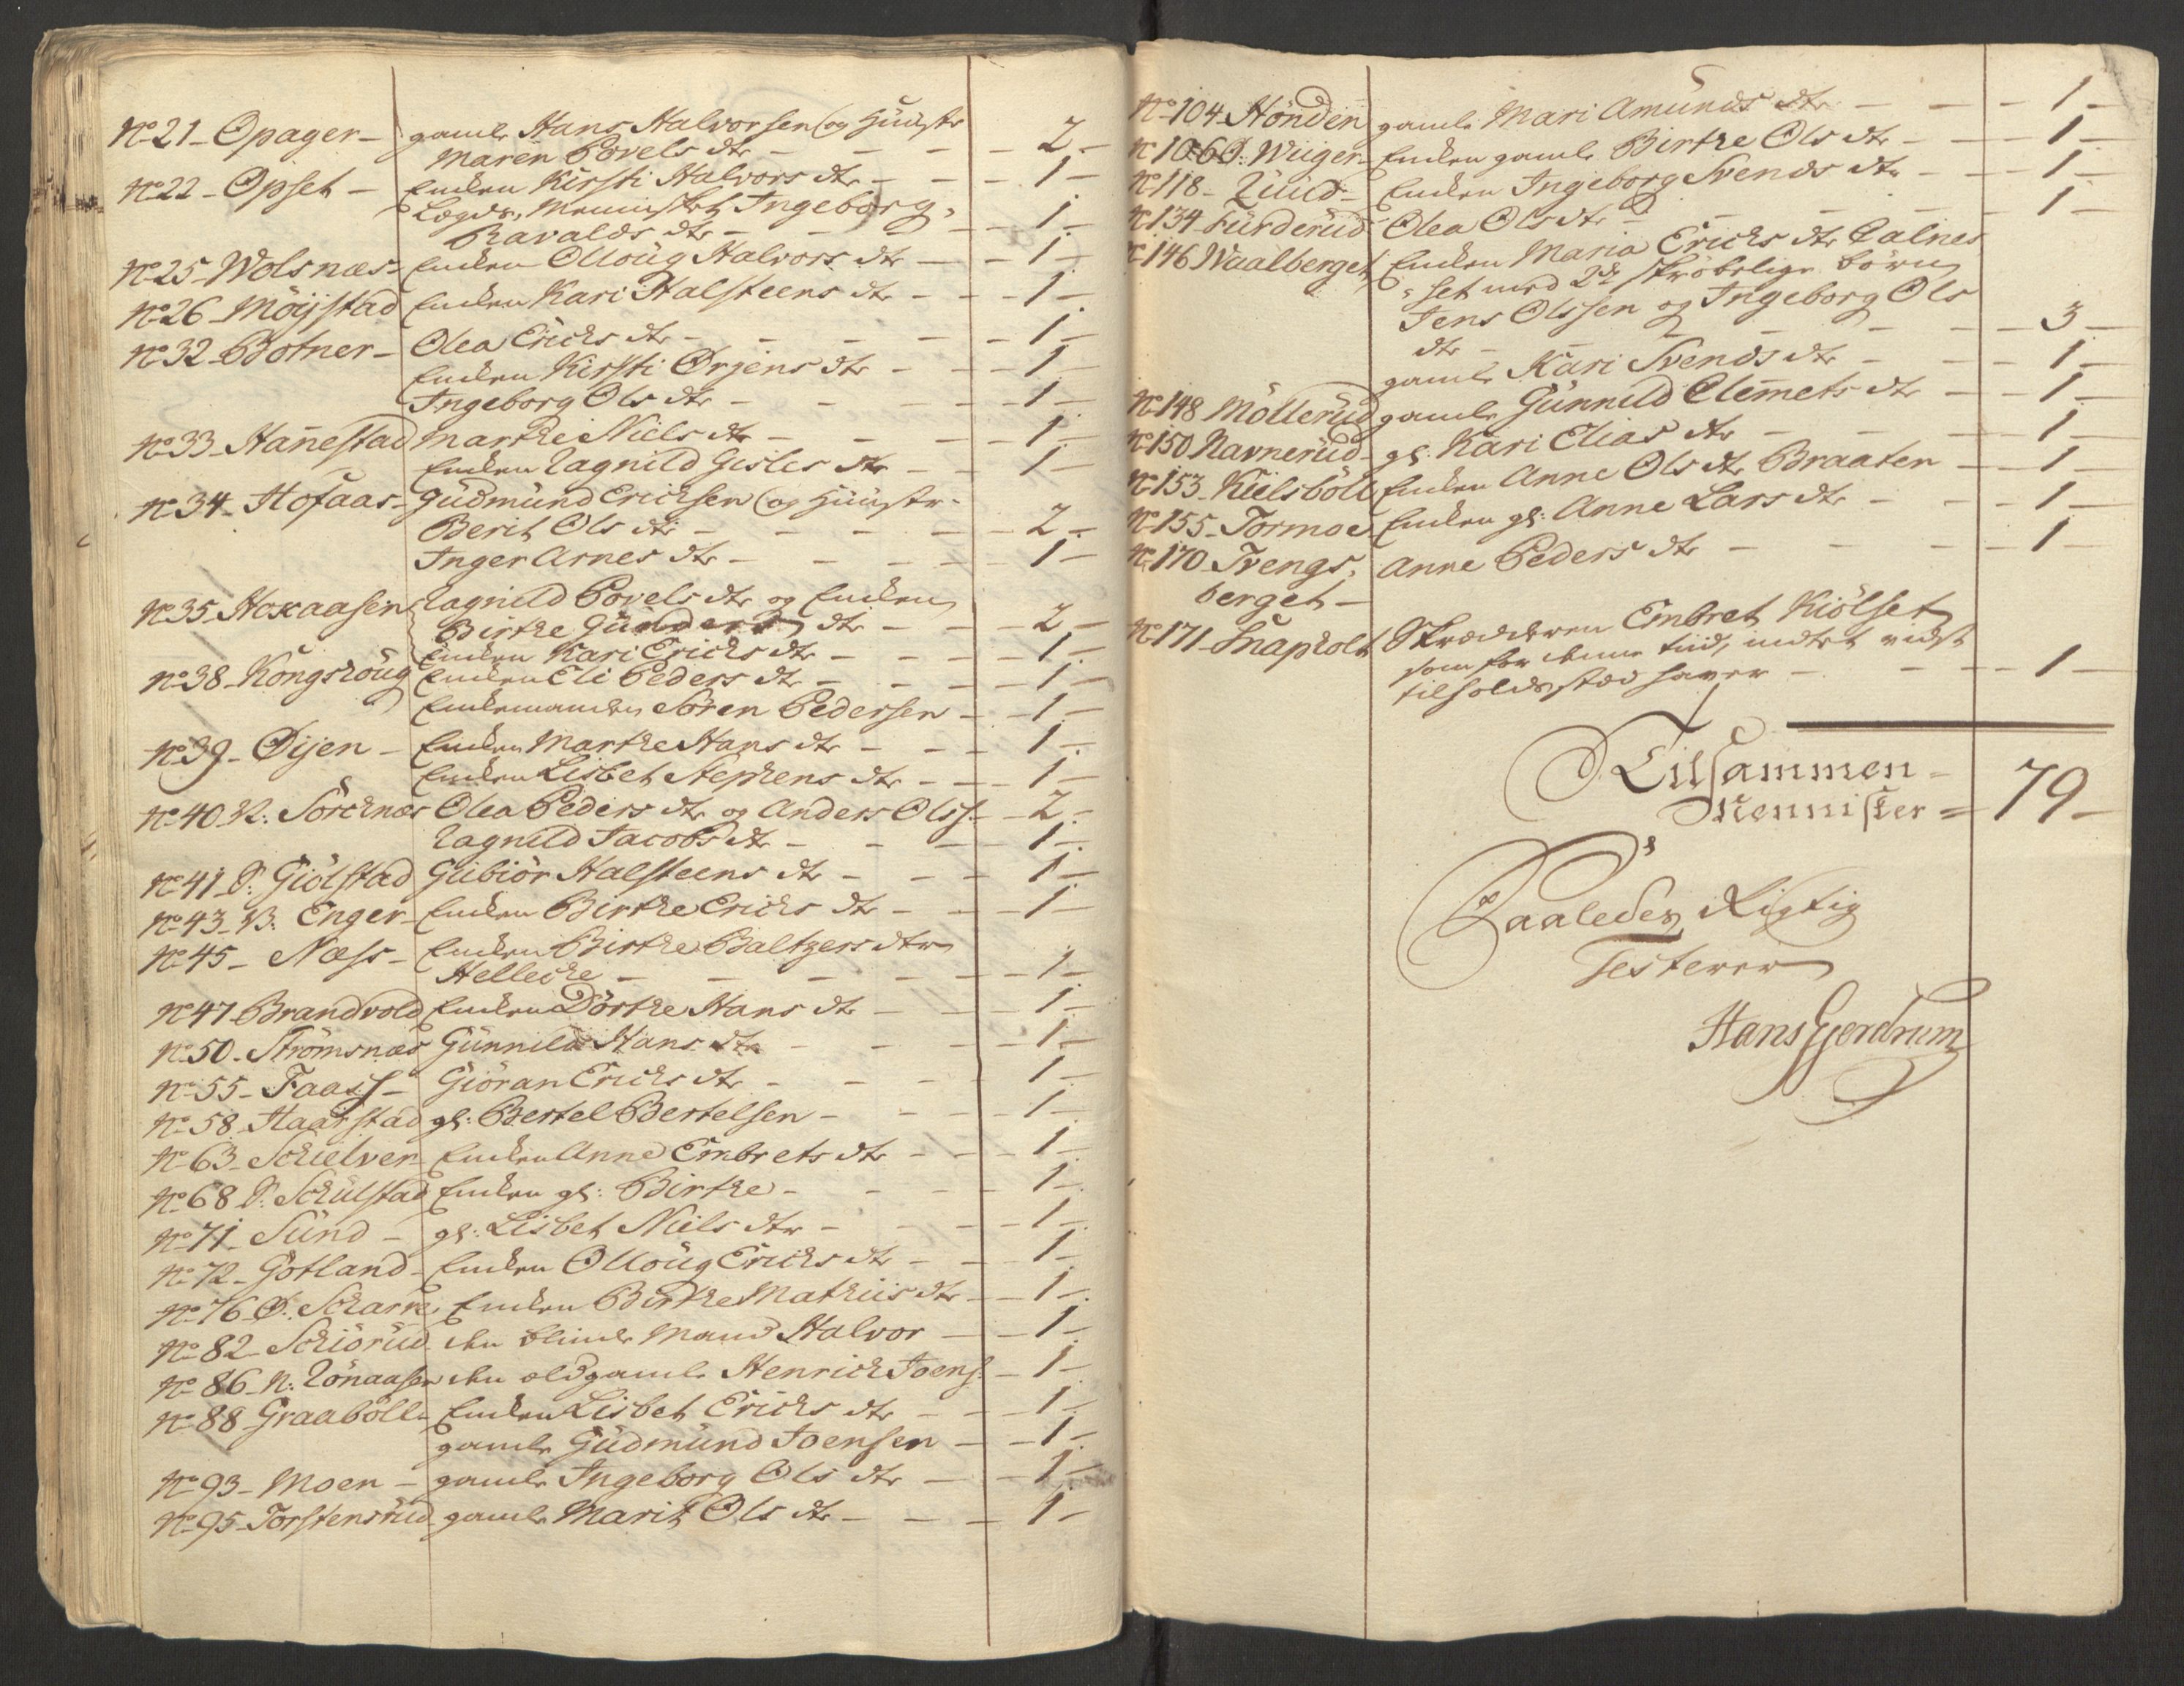 No 21 - Opager - gamle Hans Halvorsen og Huustr
Maren Povels dtr - - - - 2 -
No 22 - Opset - Enken Kirsti Halvors dtr - - 1 -
Lægds Mennisket Ingeborg
Ravalds dtr - - - 1 -
No 25 - Wolsnæs - Enken Olloug Halvors dtr - - 1 -
No 26 - Möystad Enken Kari Halsteens dtr - - 1 -
No 32 - Botner - Olea Erichs dtr - - - 1 -
Enken Kirsti Örjens dtr - - 1 -
Ingeborg Ols dtr - - - 1 -
No 33 - Hanestad Marthe Niels dtr - - - 1 -
Enken Ragnild Gisles dtr - - 1 -
No 34 - Hofaas - Gudmund Erichsen og Huustr
Berit Ols dtr - - - 2 -
Inger Arnes dtr - - - 1 -
No 35 - Hoxaasen Ragnild Povels dtr og Enken
Birthe Gunders dtr - - 2 -
Enken Kari Erichs dtr - - 1 -
No 38 - Kongshoug Enken Eli Peders dtr - - 1 -
Enkemanden Sören Pedersen - 1 -
No 39 - Öijen - Enken Marthe Hans dtr - - 1 -
Enken Lisbet Stephens dtr - - 1 -
No 40 N: Sörchnæs Olea Peders dtr og Anders Olss: - 2 -
Ragnild Jacobs dtr - - - 1 -
No 41 S: Giölstad Gubiör Halsteens dtr - - 1 -
No 43 V: Enger - Enken Birthe Erichs dtr - - 1 -
No 45 - Næss - Enken Birthe Baltzers dtr
Hellecke - - - - 1 -
No 47 - Brandvold Enken Dörthe Hans dtr - - 1 -
No 50 - Strömsnæs Gunnild Hans dtr - - 1 -
No 55 - Faass - Giöran Erichs dtr - - - 1 -
No 58 - Haarstad gl: Bertel Bertelsen - - 1 -
No 63 - Schielver - Enken Anne Embrets dtr - - 1 -
No 68 S: Schulstad Enken gl: Birthe - - - 1 -
No 71 - Sund - gl: Lisbet Niels dtr - - 1 -
No 72 - Gotland - Enken Olloug Erichs dtr - - 1 -
No 76 Ö: Scharre Enken Birthe Mathiis dtr - 1 -
No 82 - Schiörud den blinde Mand Halvor - 1 -
No 86 - N: Rönaasen den oldgamle Henrich Joens: - 1 -
No 88 - Graaböll - Enken Lisbet Erichs dtr - - 1 -
gamle Gudmund Joensen - - 1 -
No 93 - Moen - gamle Ingeborg Ols dtr - - 1 -
No 95 - Torstensrud gamle Marit Ols dtr - - - 1 -
No 104 - Hönden gamle Mari Amunds dtr - - 1 -
No 106 Ö: Wiiger - Enken gamle Birthe Ols dtr - - 1 -
No 118 - Ruud - Enken Ingeborg Svends dtr - - 1 -
No 134 Furderud Olea Ols dtr - - - 1 -
No 146 Waalberget Enken Maria Erichs dtr Calnes
set med 2de skröbelige börn
Jens Olssen og Ingeborg Ols
dtr - - - - 3 -
gamle Kari Svends dtr - - 1 -
No 148 Möllerud gamle Gunnild Clemets dtr - 1 -
No 150 Navnerud - gl: Kari Elias dtr - - - 1 -
No 153 - Kielsböll Enken Anne Ols dtr Braaten - 1 -
No 155 - Tormoe Enken gl: Anne Lars dtr - - 1 -
No 170 - Tvengs Anne Peders dtr - - - 1 -
berget -
No 171 - Snapholt Skrædderen Embret Kiölset
som for denne tiid, intet vidst
tilholdsstæd haver - - - 1 -
Tilsammen -
Mennisker = 79 -
Saaledes Rigtig
Testerer
Hans Gjerdrum